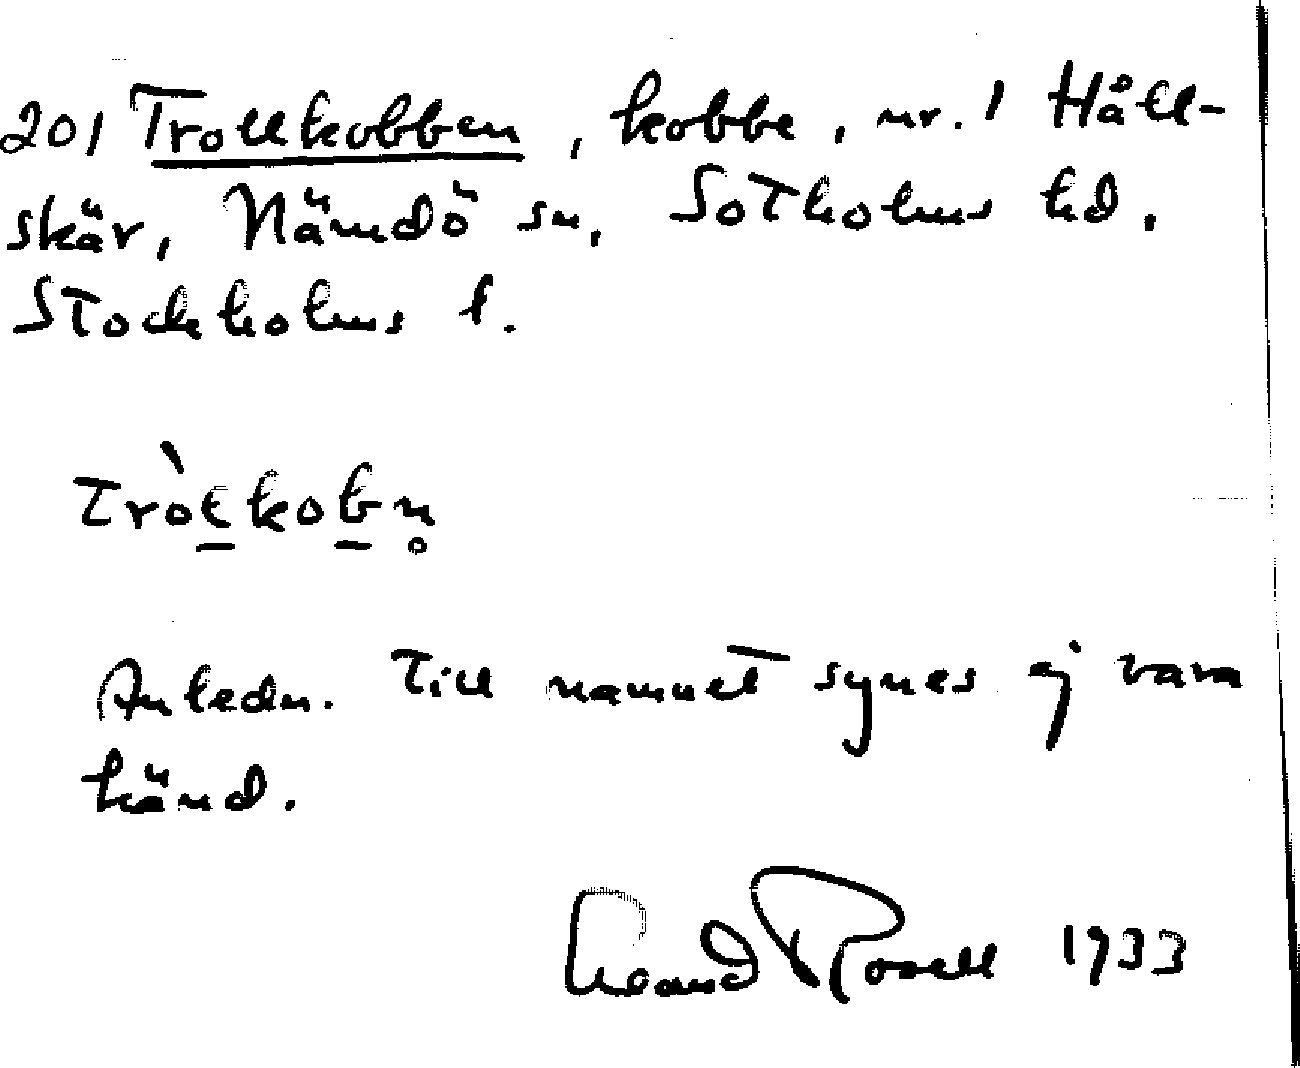 201 Trollkobben, kobbe, nr. 1 Håll-
skär, Nämdö sn, Sotholms hd.
Stockholms l.
tròlkobn̥
Anledn. till namnet synes ej vara
känd.
Rosell 1933